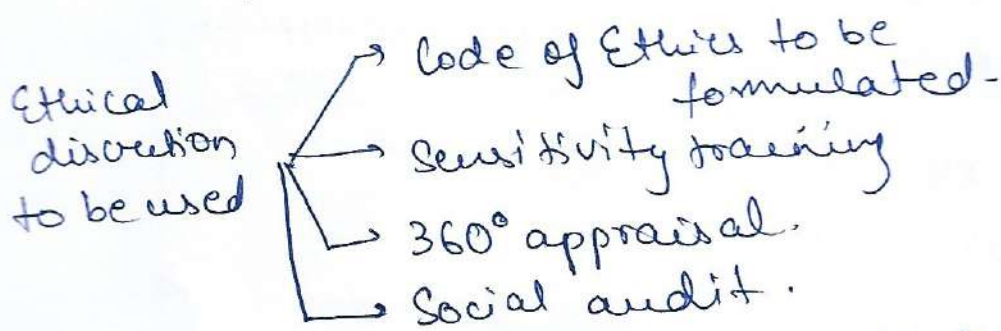 Ethical
discretion
to be used
Code of Ethics to be
formulated-
Sensitivity training
360° appraisal.
Social audit.